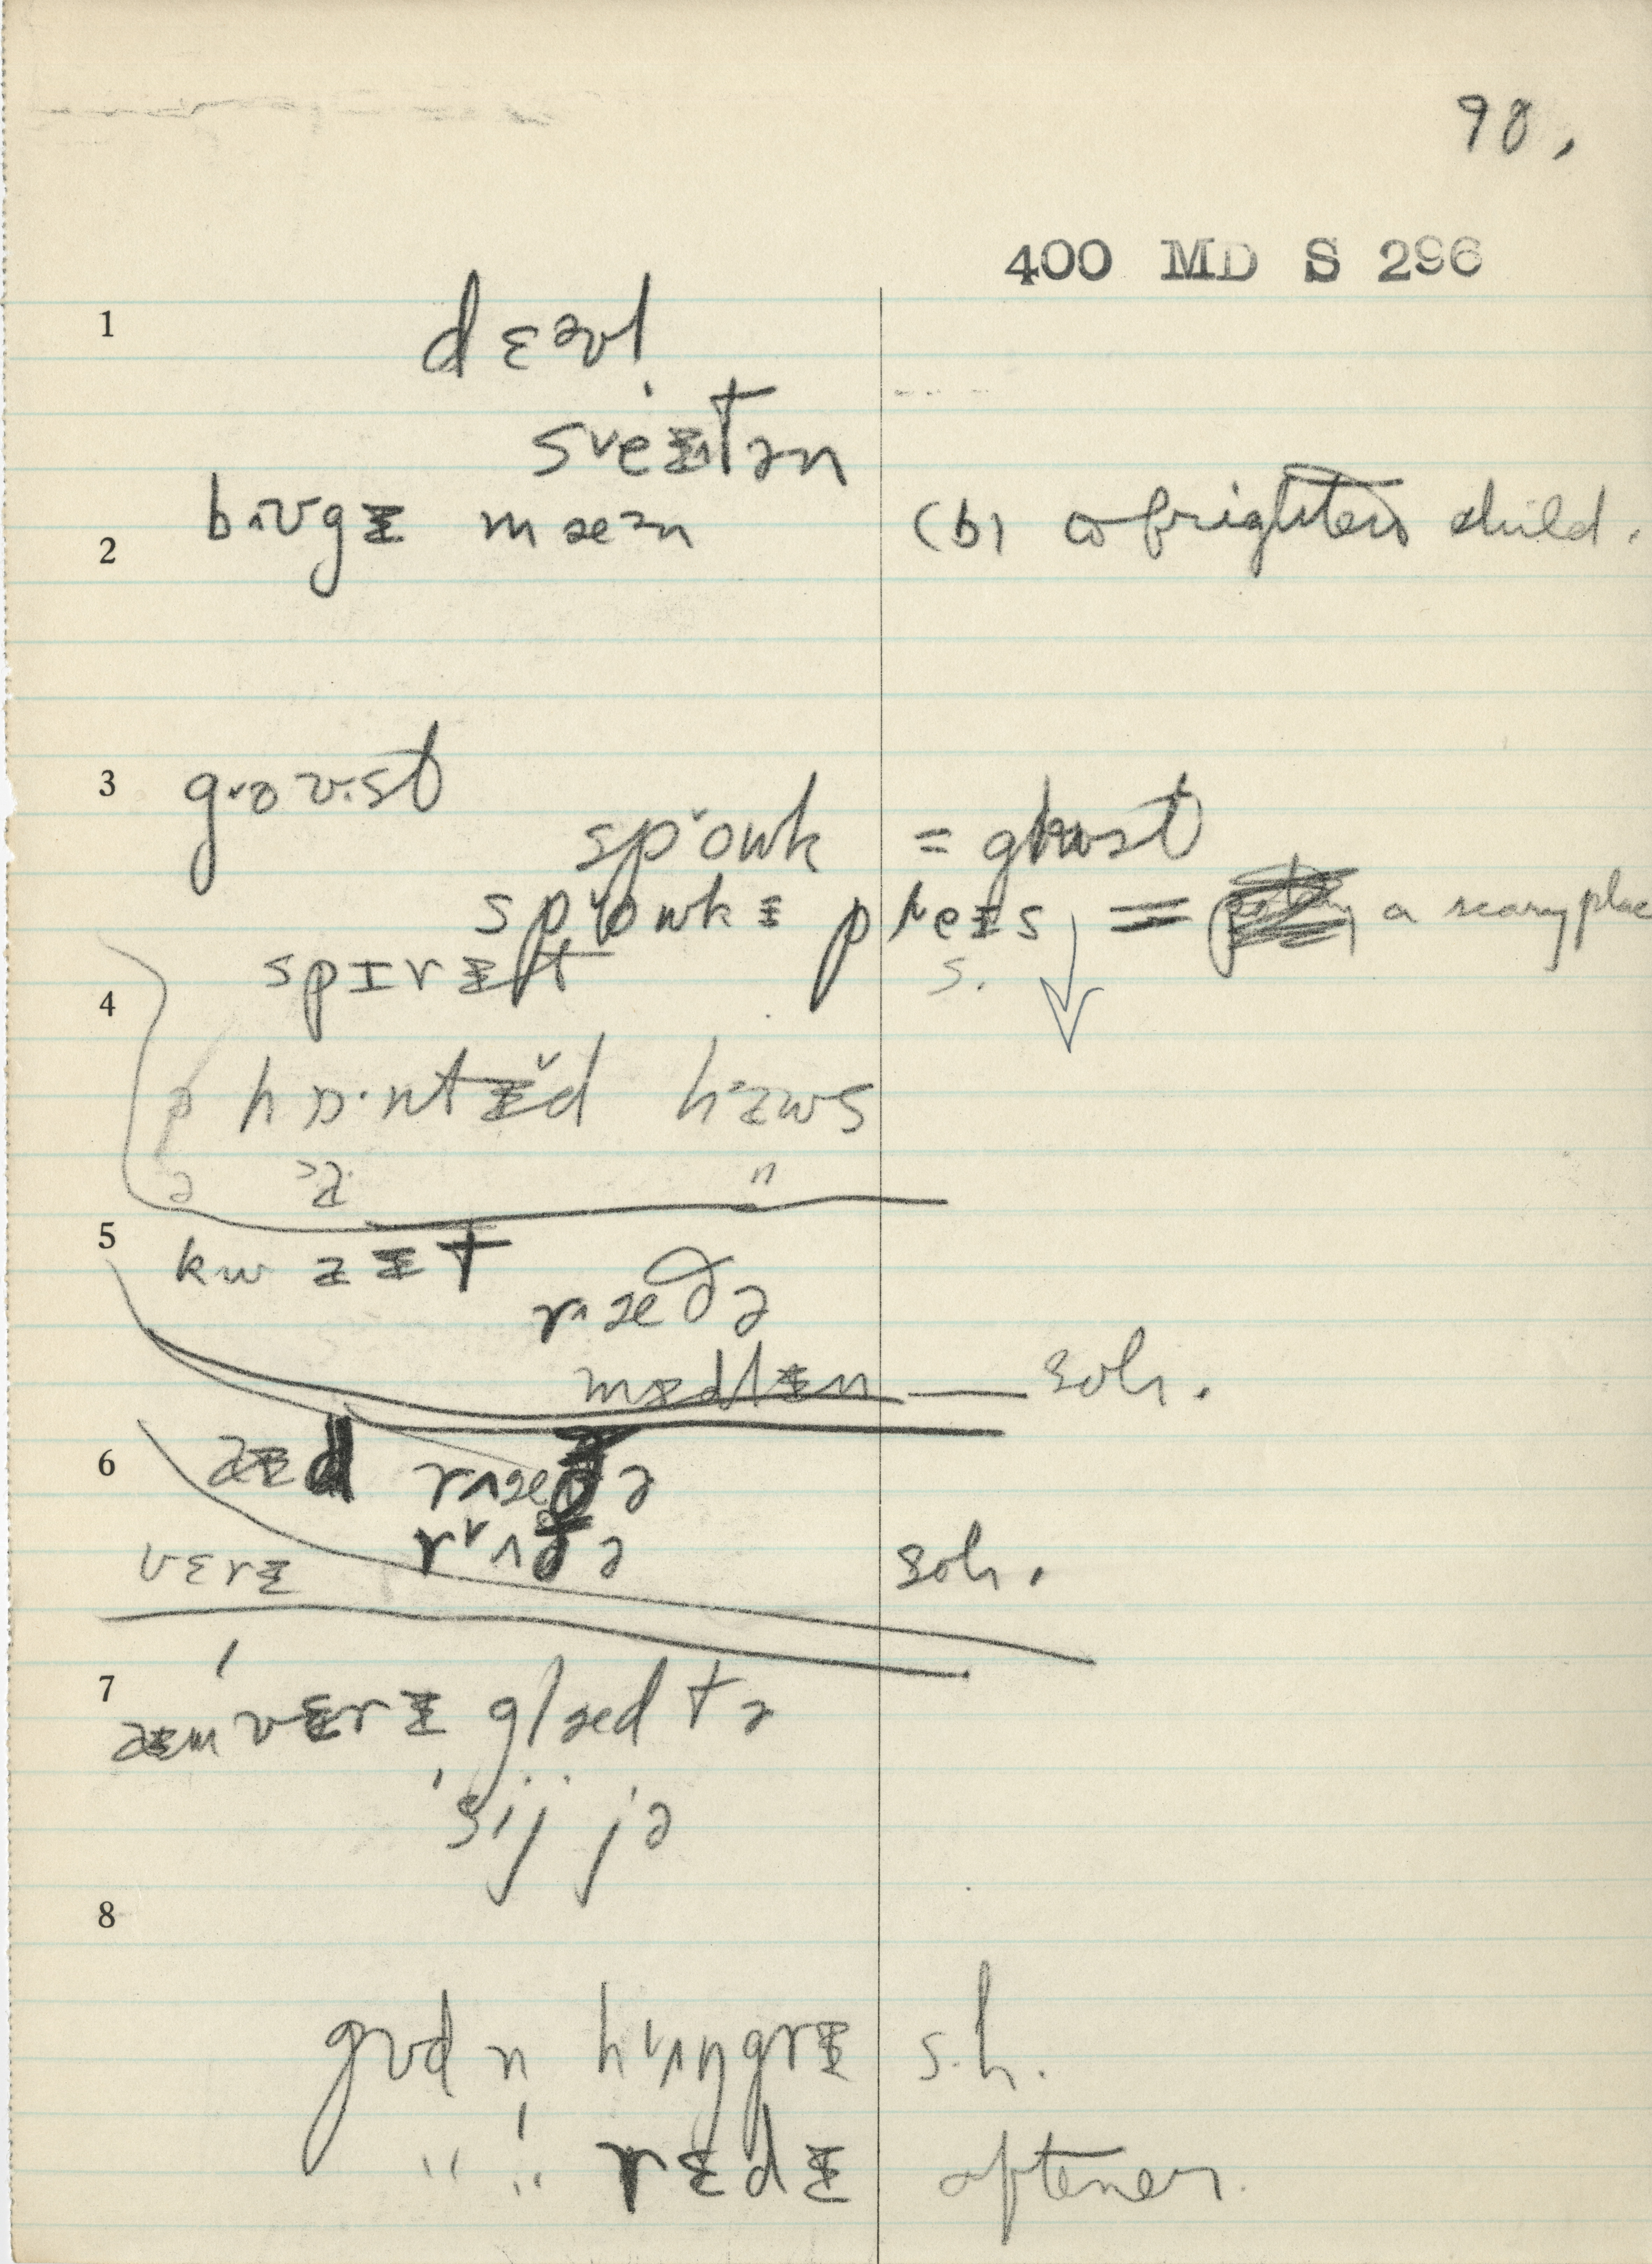 90.
400 MD S 296
1
dɛəvl
sᵛeᵻtən
2 b˄ʊgᵻ mæən (b) to frighten child.
3 g˅oʊ.st
sp˅owk = ghost
sp˅owkᵻ pleᵻs = a scary place
4 spɪrᵻt s.
hɒ·ntᵻ̌d haws
ə "
5 kwaᵻt
r˄æðə
mɛdlᵻn — ɛoh.
6 aᵻd r˄æðə
r˅ʌðə
vɛrᵻ ɛoh.
7 aᵻm vɛrᵻ glæd tə
sij jə
8
gʊd n hʌŋgrᵻ s.h.
" " rɛdᵻ oftener.